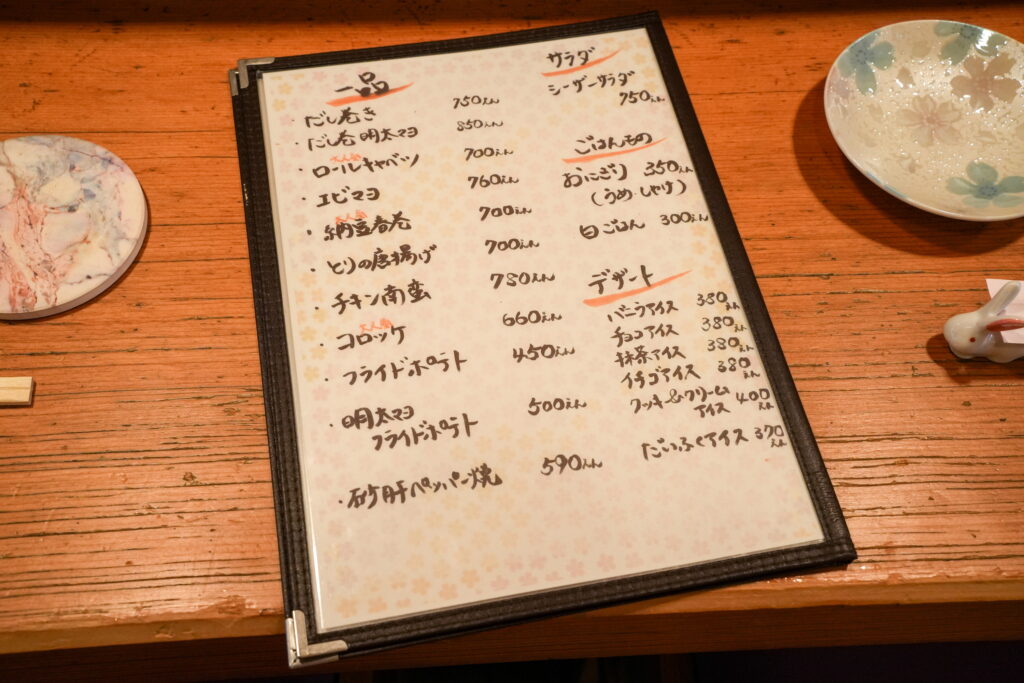 一品
・だし巻き 750えん
・だし巻 明太マヨ 850えん
大人気
・ロールキャベツ 700えん
・エビマヨ 760えん
大人気
・納豆春巻 700えん
・とりの唐揚げ 700えん
・チキン南蛮 780えん
大人気
・コロッケ 660えん
・フライドポテト 450えん
・明太マヨ
フライドポテト 500えん
・砂肝ペッパー焼 590えん
サラダ
シーザーサラダ
750えん
ごはんもの
おにぎり 350えん
(うめ・しゃけ)
白ごはん 300えん
デザート
バニラアイス 380えん
チョコアイス 380えん
抹茶アイス 380えん
イチゴアイス 380えん
クッキー&クリーム
アイス 400えん
だいふくアイス 370えん